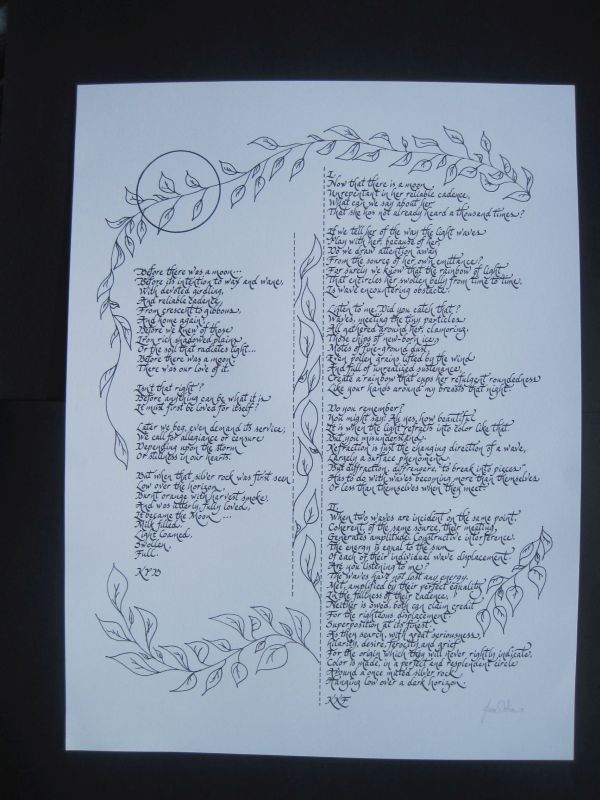 Before there was a moon...
Before its intention to wax and wane,
With devoted girdling,
And reliable cadence,
From crescent to gibbous,
And home again,
Before we knew of those
Iron rich shadowed plains
Or the soil that radiates light...
Before there was a moon
There was our love of it.
Isn't that right?
Before anything can be what it is
It must first be loved for itself!
Later we beg, even demand its service;
We call for allegiance or censure
Depending upon the storm
Or stillness in our hearts.
But when that silver rock was first seen
Low over the horizon,
Burnt orange with harvest smoke,
And was utterly, fully loved,
It became the Moon ...
Milk filled.
Light loamed.
Swollen.
Full.
I.
Now that there is a moon
Unrepentant in her reliable cadence,
What can we say about her
That she has not already heard a thousand times?
If we tell her of the way the light waves
Play with her, because of her,
Do we draw attention away
From the source of her own emittance?
For surely we know that the rainbow of light
That encircles her swollen belly from time to time,
Is wave encountering obstacle.
Listen to me. Did you catch that?
Waves, meeting the tiny particles
All gathered around her, clamoring.
Those chips of new-born ice,
Motes of fine-ground dust,
Even pollen grains lifted by the wind
And full of unrealized sustenance,
Create a rainbow that cups her refulgent roundedness
Like your hands around my breasts that night.
Do you remember?
You might say: Ah yes, how beautiful
It is when the light refracts into color like that.
But you misunderstand.
Refraction is just the changing direction of a wave,
Largely a surface phenomena.
But diffraction, diffringere, "to break into pieces"
Has to do with waves becoming more than themselves
Or less than themselves when they meet.
II.
When two waves are incident on the same point,
Coherent, of the same source, their meeting,
Generates amplitude. Constructive interference.
The energy is equal to the sum
Of each of their individual wave displacement
Are you listening to me?
The waves have not lost any energy.
Met, amplified by their perfect equality,
In the fullness of their cadence,
Neither is owed, both can claim credit
For the righteous displacement.
Superposition at its finest.
As they search, with great seriousness,
hilarity, desire, ferocity, and grief
For the origin which they will never rightly indicate,
Color is made, in a perfect and resplendent circle
Around a once muted silver rock
Hanging low over a dark horizon.